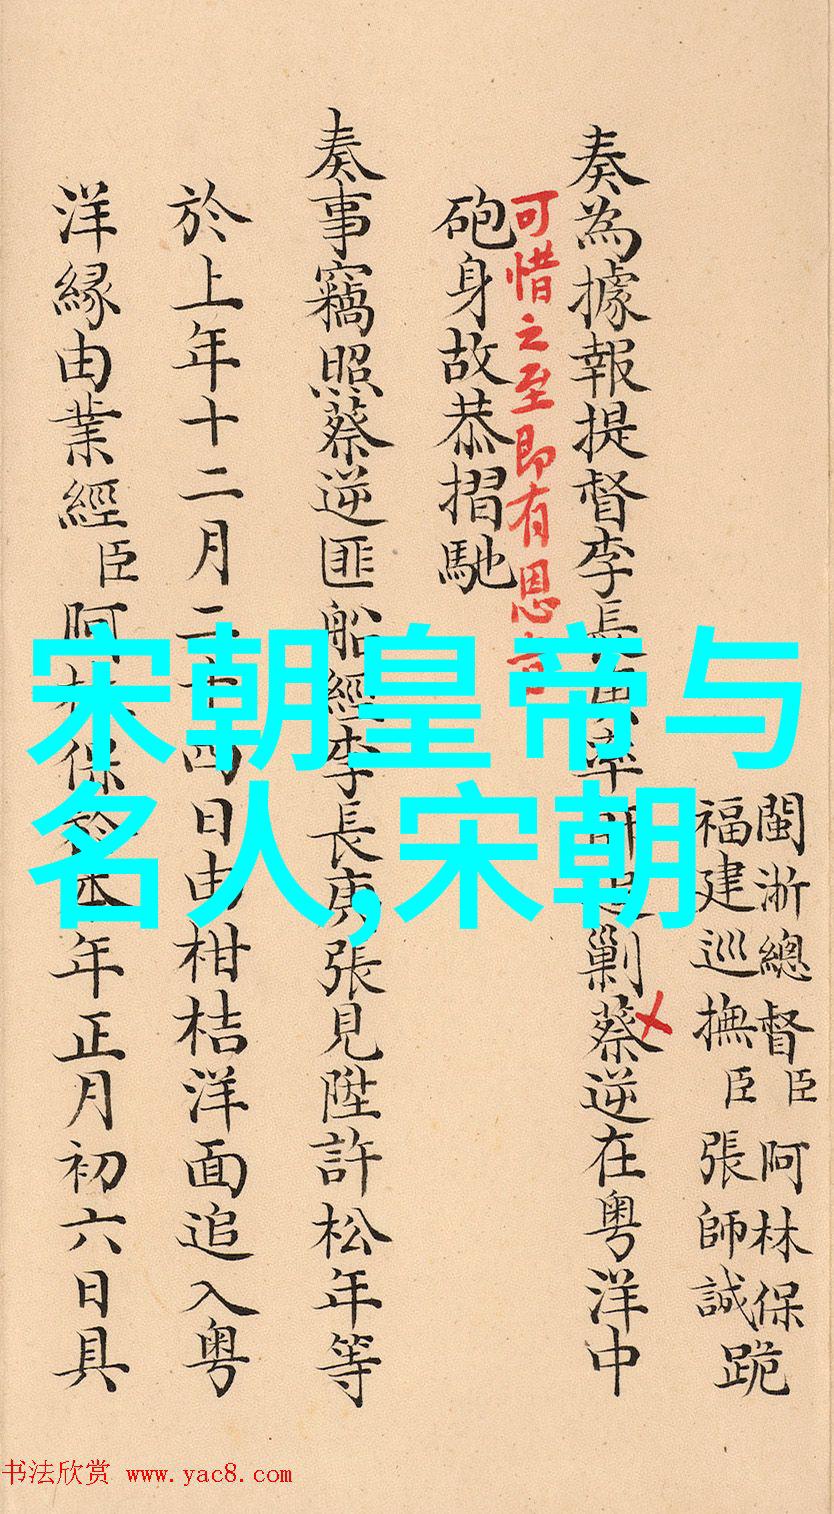 閩浙總督臣阿林保
福建巡撫臣張師誠跪
奏為據報提督李長率剿蔡逆在粤洋中
可惜之至即有恩
砲身故恭摺馳
奏事竊照蔡逆匪船經李長庚張見陞許松年等
於上年十二月二十四日由柑桔洋面追入粤
洋緣由業經臣阿林保於年正月初六日具
宋朝皇帝与
名人,宋朝
书法欣赏 www.yac8.com